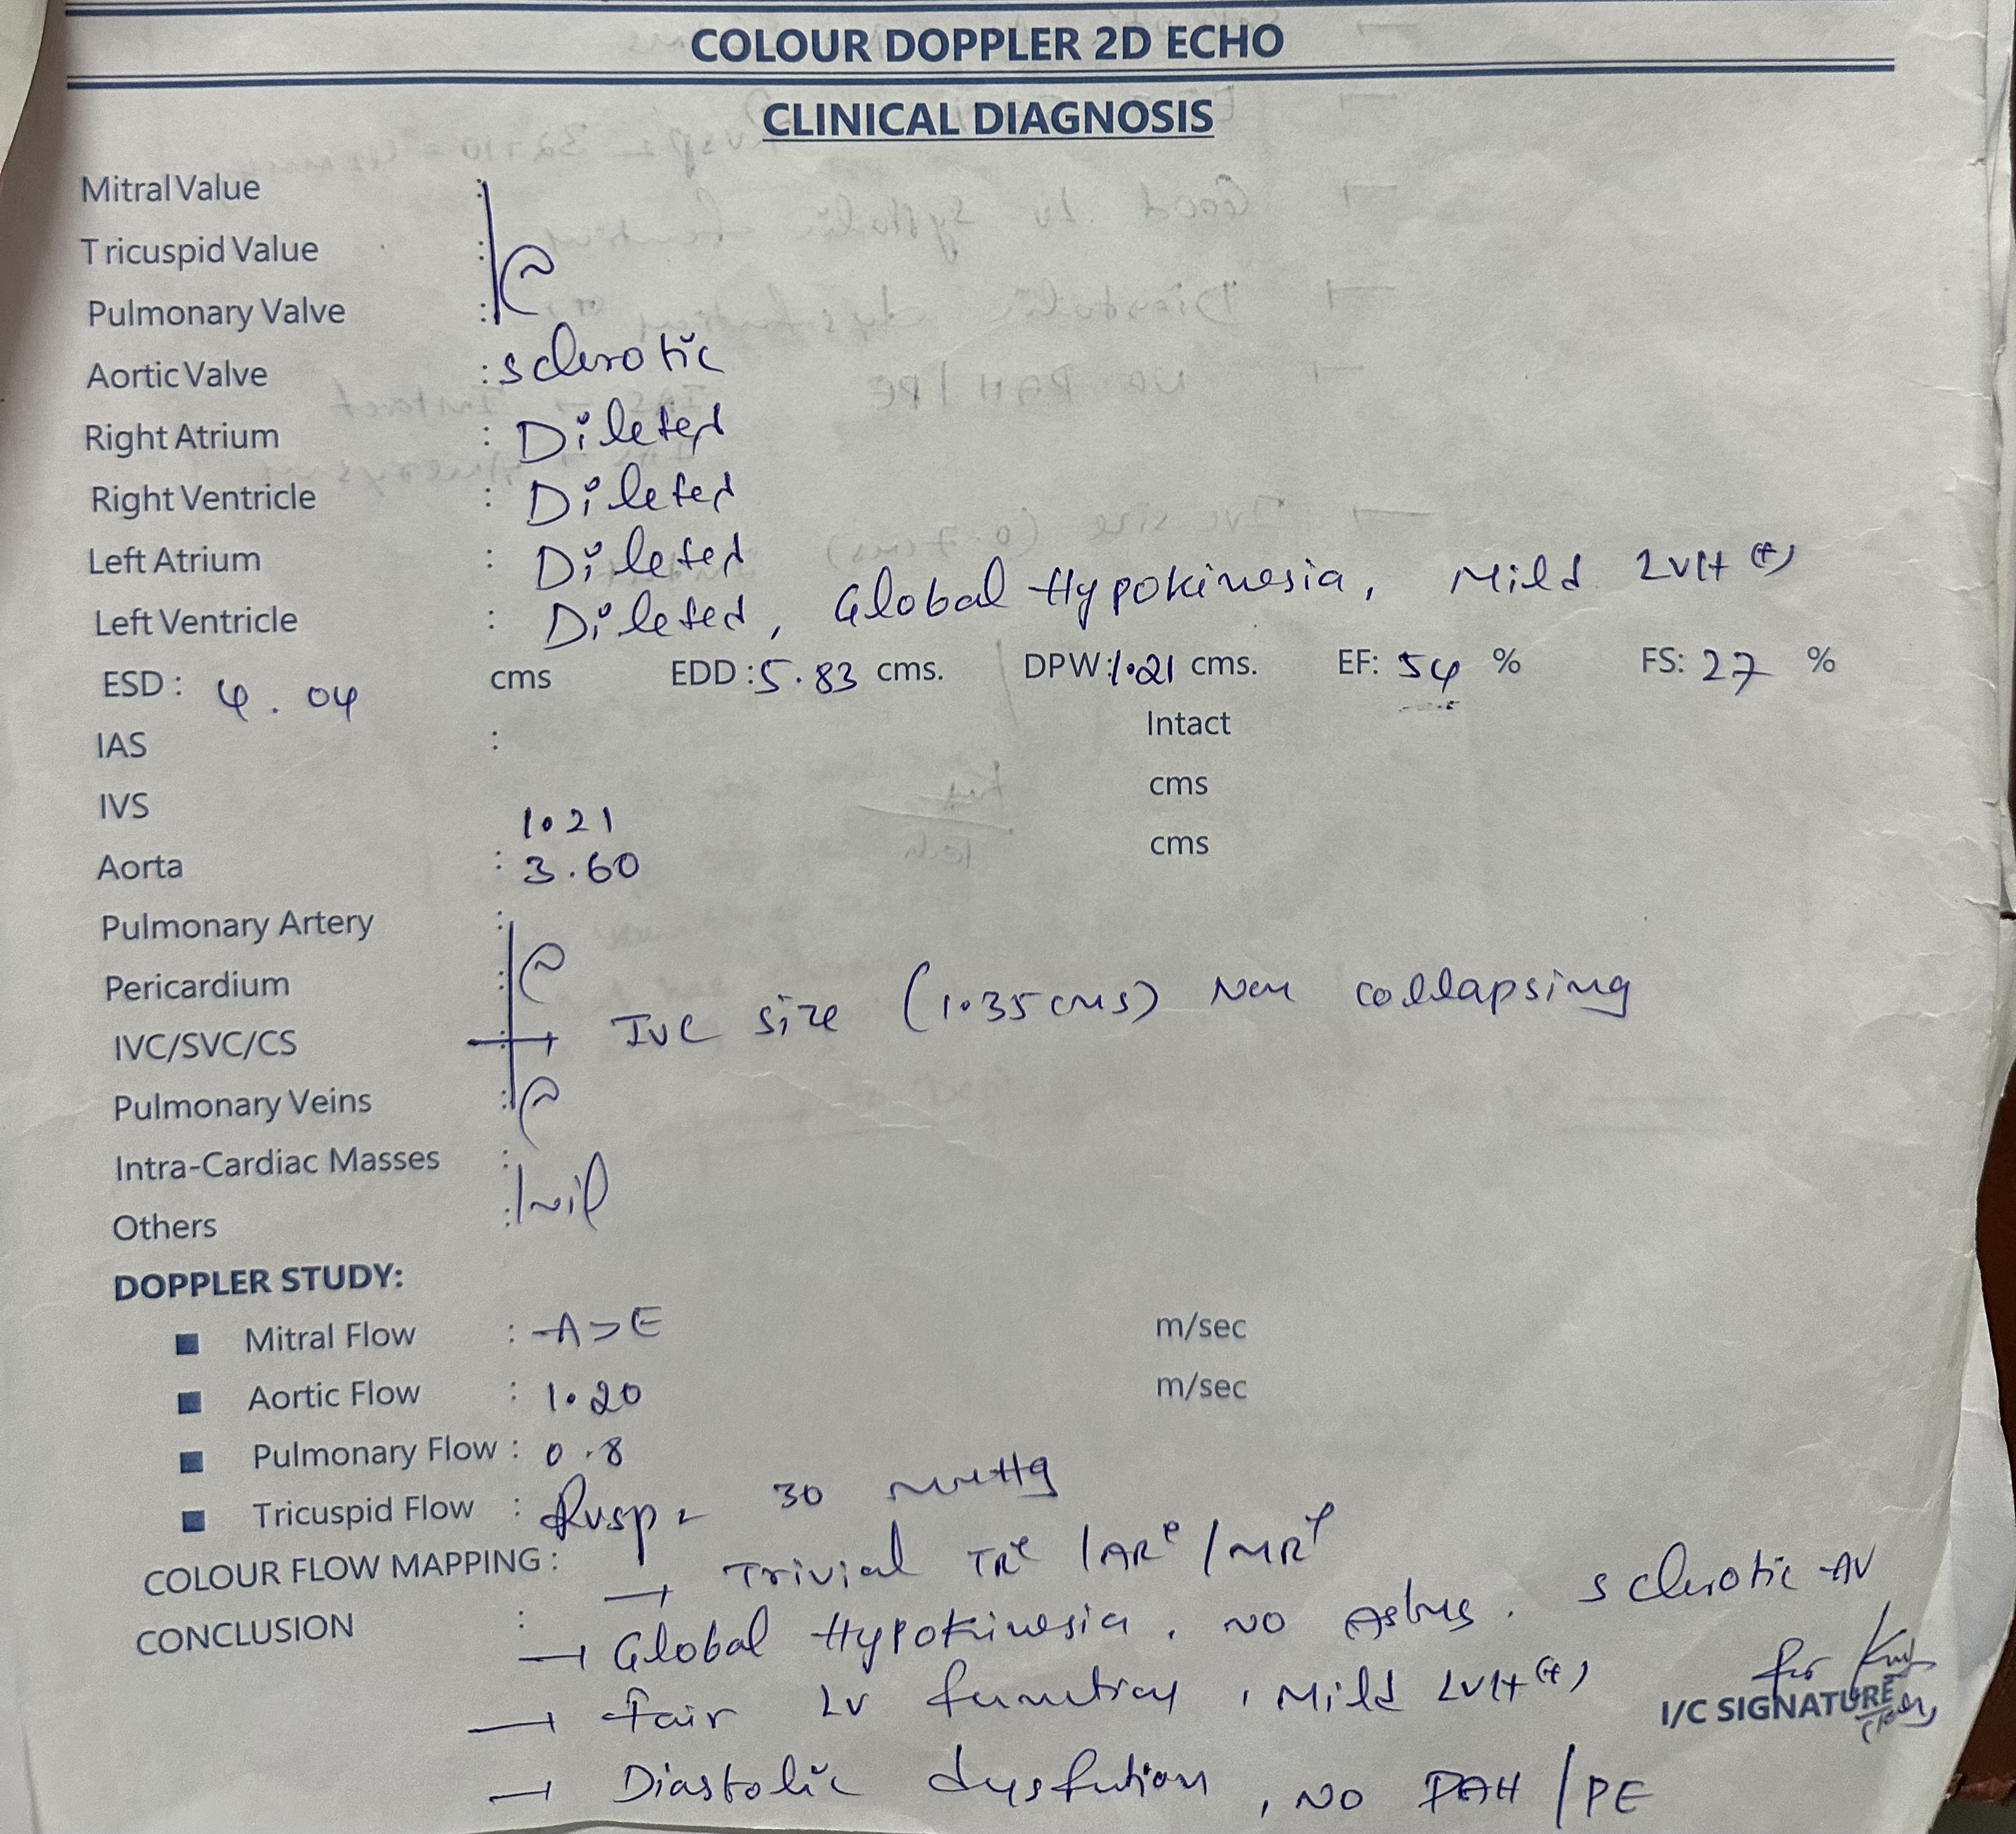 COLOUR DOPPLER 2D ECHO
CLINICAL DIAGNOSIS
Mitral Value :
Tricuspid Value :
Pulmonary Valve :
Aortic Valve : sclerotic
Right Atrium : Dileted
Right Ventricle : Dileted
Left Atrium : Dileted
Left Ventricle : Dileted, Global Hypokinesia, Mild LVH (+)
ESD : 4.04 cms EDD : 5.83 cms. DPW : 1.21 cms. EF: 54 % FS: 27 %
IAS : Intact
IVS 1.21 cms
Aorta : 3.60 cms
Pulmonary Artery :
Pericardium :
IVC/SVC/CS : IVC size (1.35cms) Non collapsing
Pulmonary Veins :
Intra-Cardiac Masses :
Others : Nil
DOPPLER STUDY:
■ Mitral Flow : A>E m/sec
■ Aortic Flow : 1.20 m/sec
■ Pulmonary Flow : 0.8
■ Tricuspid Flow : RVSP = 30 mmHg
COLOUR FLOW MAPPING : → Trivial TR / AR / MR
CONCLUSION : → Global Hypokinesia, NO . Sclerotic AV
→ Fair LV function, Mild LVH (+)
I/C SIGNATURE
→ Diastolic dysfution, NO PAH / PE